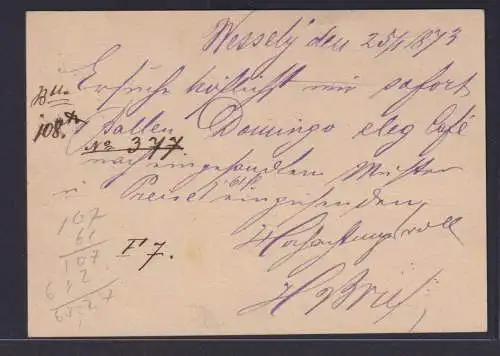 Wessely den 25/1 1873
Ersuche höflichst mir sofort
108.
Ballen Domingo eleg Café
No 377
nach eingesandten Muster
u Preise einzusenden
Hochachtungsvoll
F 7.
107
61
107
642